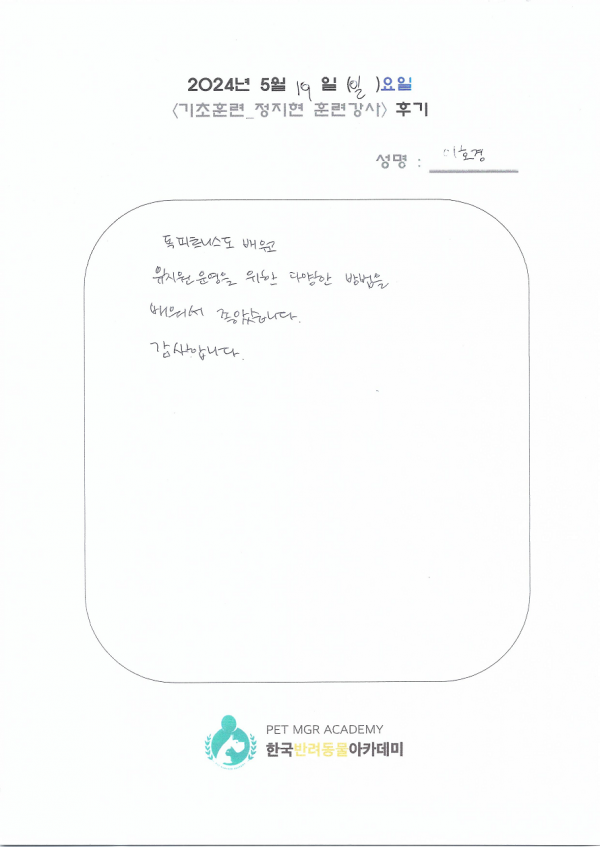 2024년 5월 19 일 (일 )요일
<기초훈련_정지현 훈련강사> 후기
성명 : 이호경
독피트니스도 배우고
유치원 운영을 위한 다양한 방법을
배워서 좋았습니다.
감사합니다.
PET MGR ACADEMY
한국반려동물아카데미